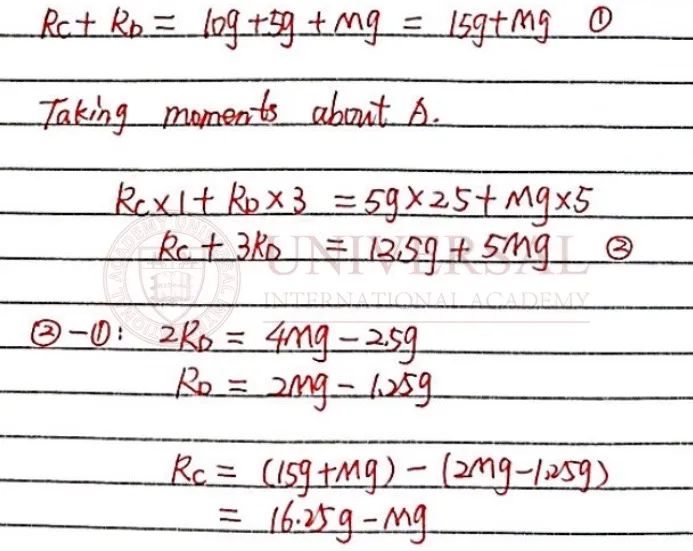 Rc + RD = 10g + 5g + Mg = 15g + Mg ①
Taking moments about A.
Rc × 1 + RD × 3 = 5g × 2.5 + Mg × 5
Rc + 3RD = 12.5g + 5Mg ②
UNIVERSAL
INTERNATIONAL ACADEMY
② - ①: 2RD = 4Mg - 2.5g
RD = 2Mg - 1.25g
Rc = (15g + Mg) - (2Mg - 1.25g)
= 16.25g - Mg